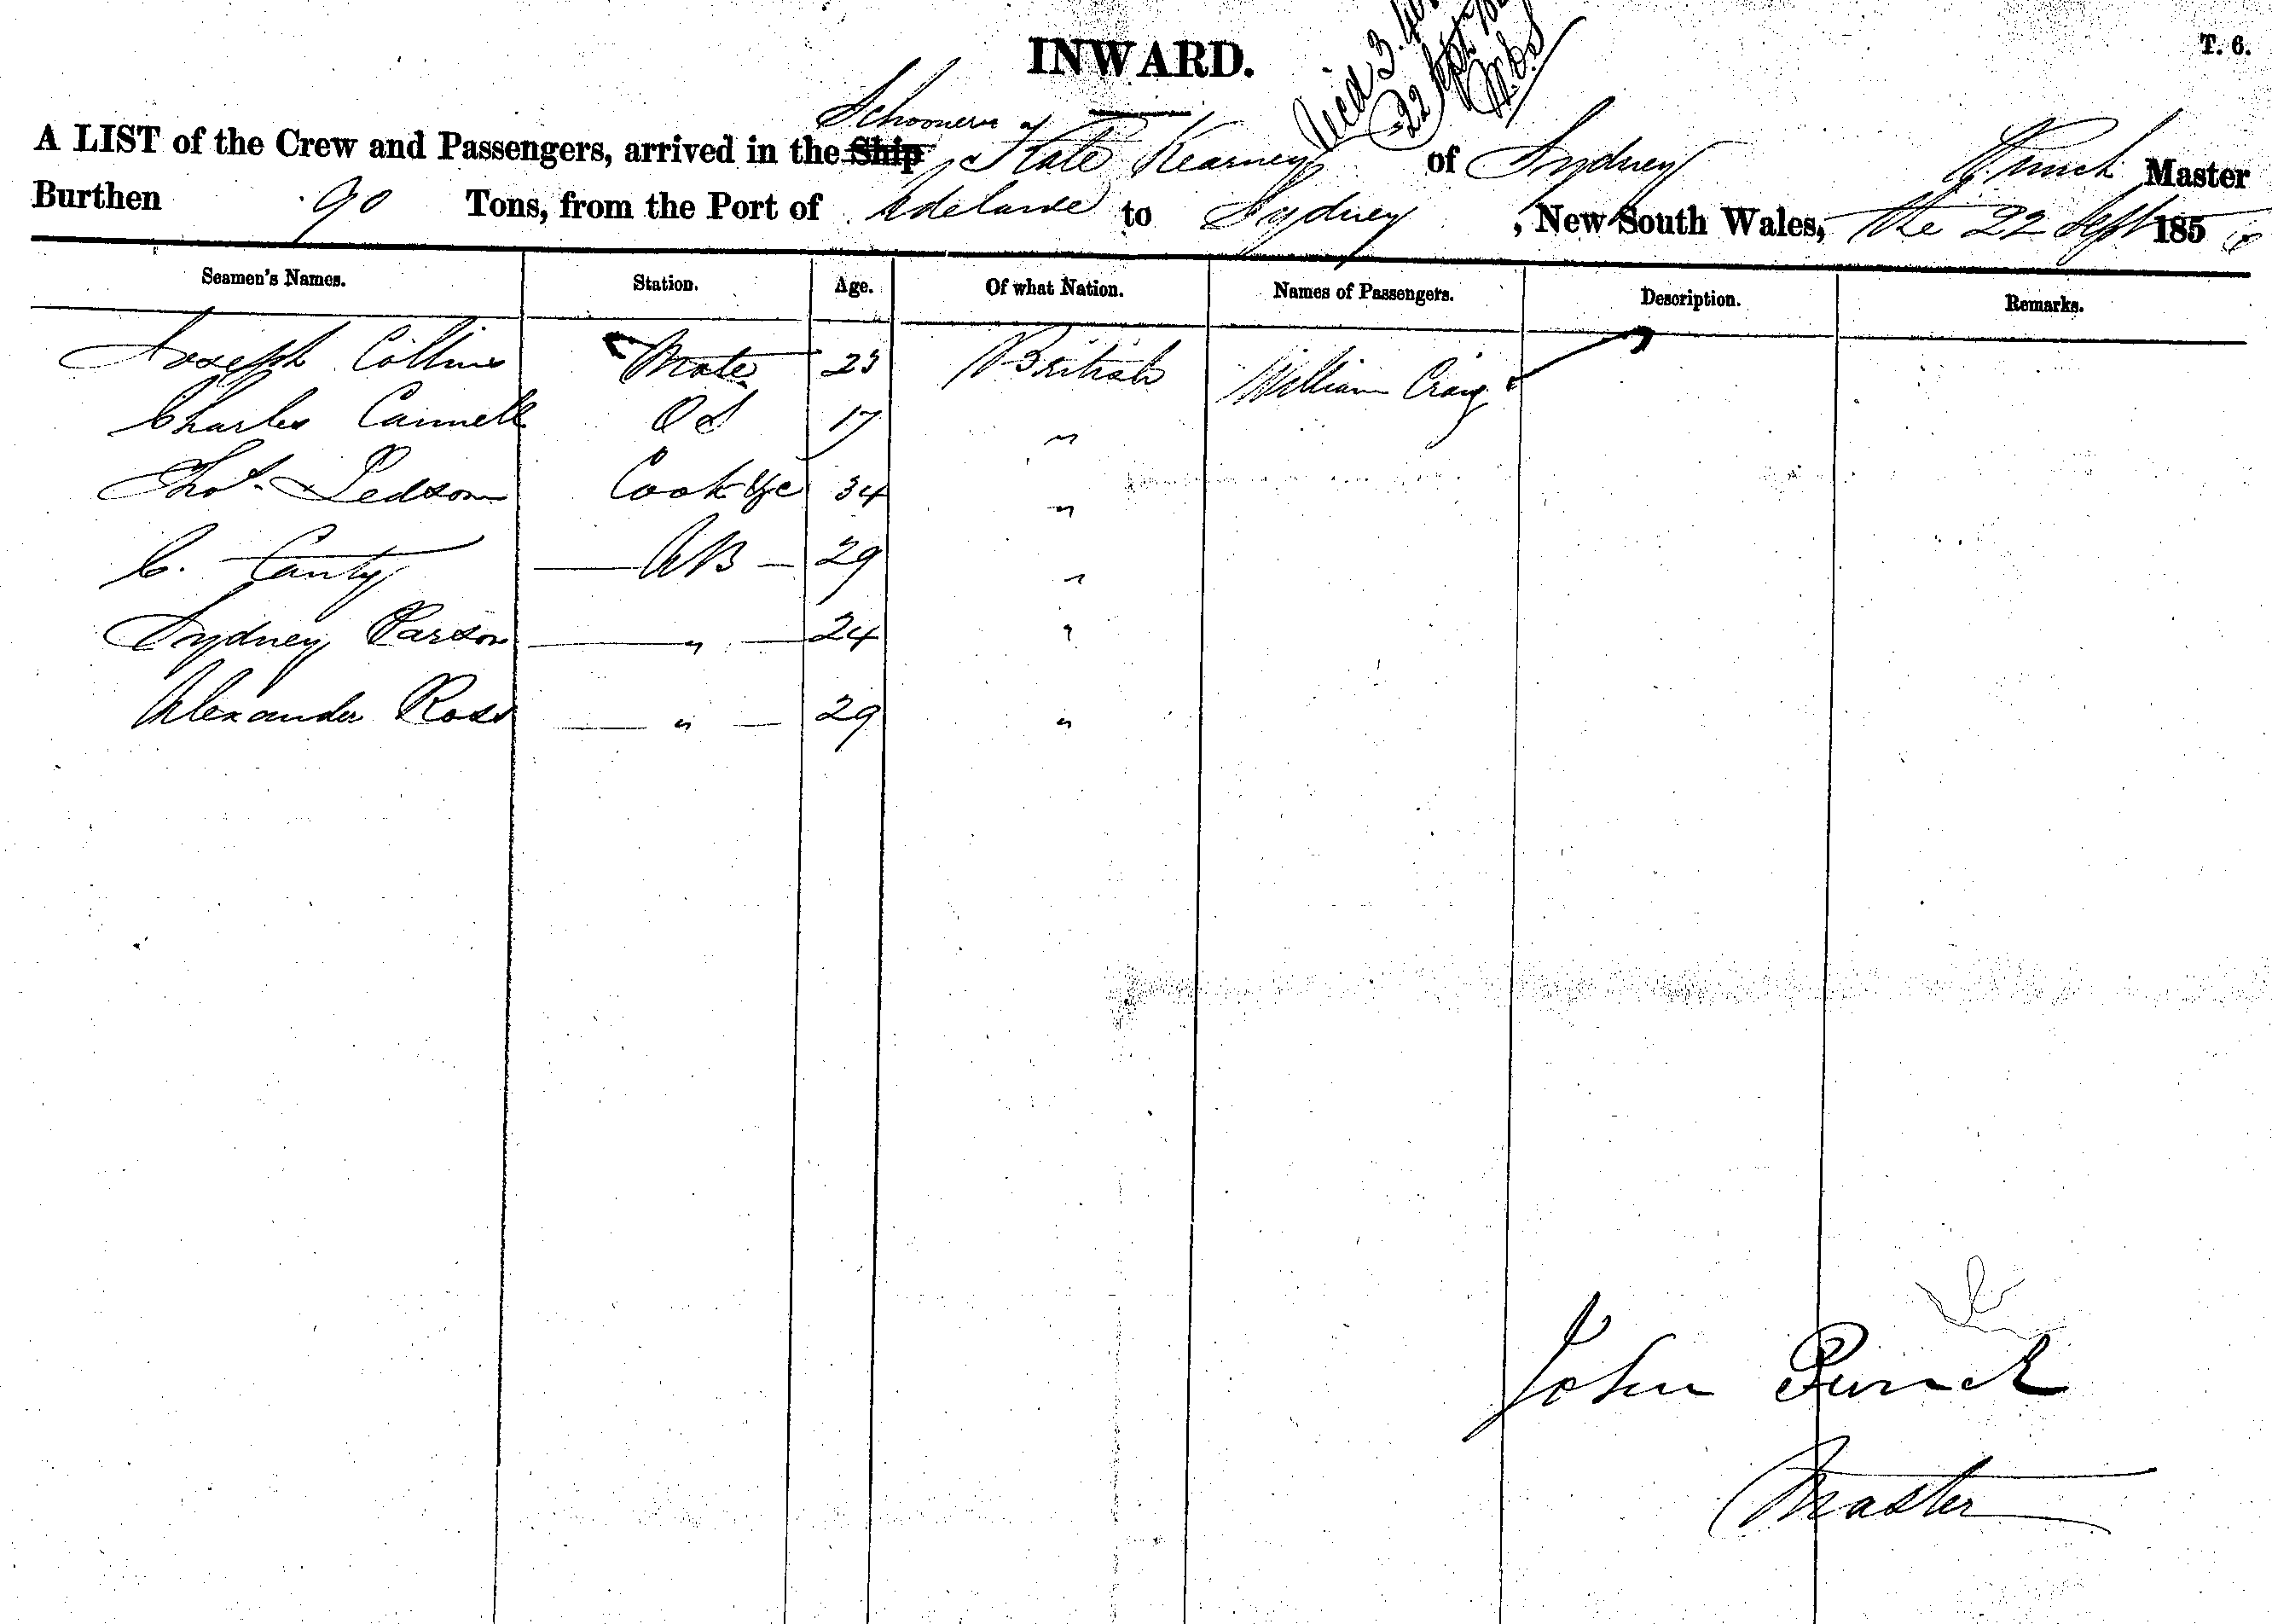 INWARD.
T. 6.
22 Sept
Schooner
A LIST of the Crew and Passengers, arrived in the Ship Kate Kearney of Sydney J Punch Master
Burthen 90 Tons, from the Port of Adelaide to Sydney , New South Wales, the 22 Sept 185
Seamen's Names. Station. Age. Of what Nation. Names of Passengers. Description. Remarks.
Joseph Collins Mate 23 British William Craig
Charles Cannell OS 17 "
Thos. Ledson Cook &c 34 "
C. Canty AB 29 "
Sydney Parson " 24 "
Alexander Ross " 29 "
John Punch
Master